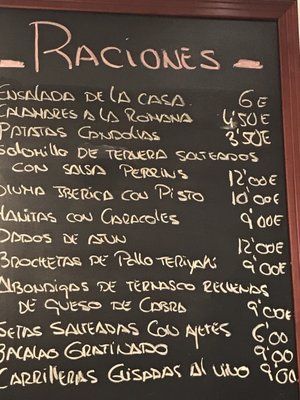 - RACIONES -
ENSALADA DE LA CASA 6E
CALAMARES A LA ROMANA 4,50E
PATATAS GONDOLIAS 3'50E
SOLOMILLO DE TERNERA SALTEADOS
CON SALSA PERRINS 12'00E
PLUMA IBERICA CON PISTO 10'00E
MANITAS CON CARACOLES 9'00E
DADOS DE ATUN 12'00E
BROCHETAS DE POLLO TERIYAKI 9'00E
ALBONDIGAS DE TERNASCO RELLENAS
DE QUESO DE CABRA 9'00
SETAS SALTEADAS CON AJETES 6'00
BACALAO GRATINADO 9'00
CARRILLERAS GUISADAS AL VINO 9'00